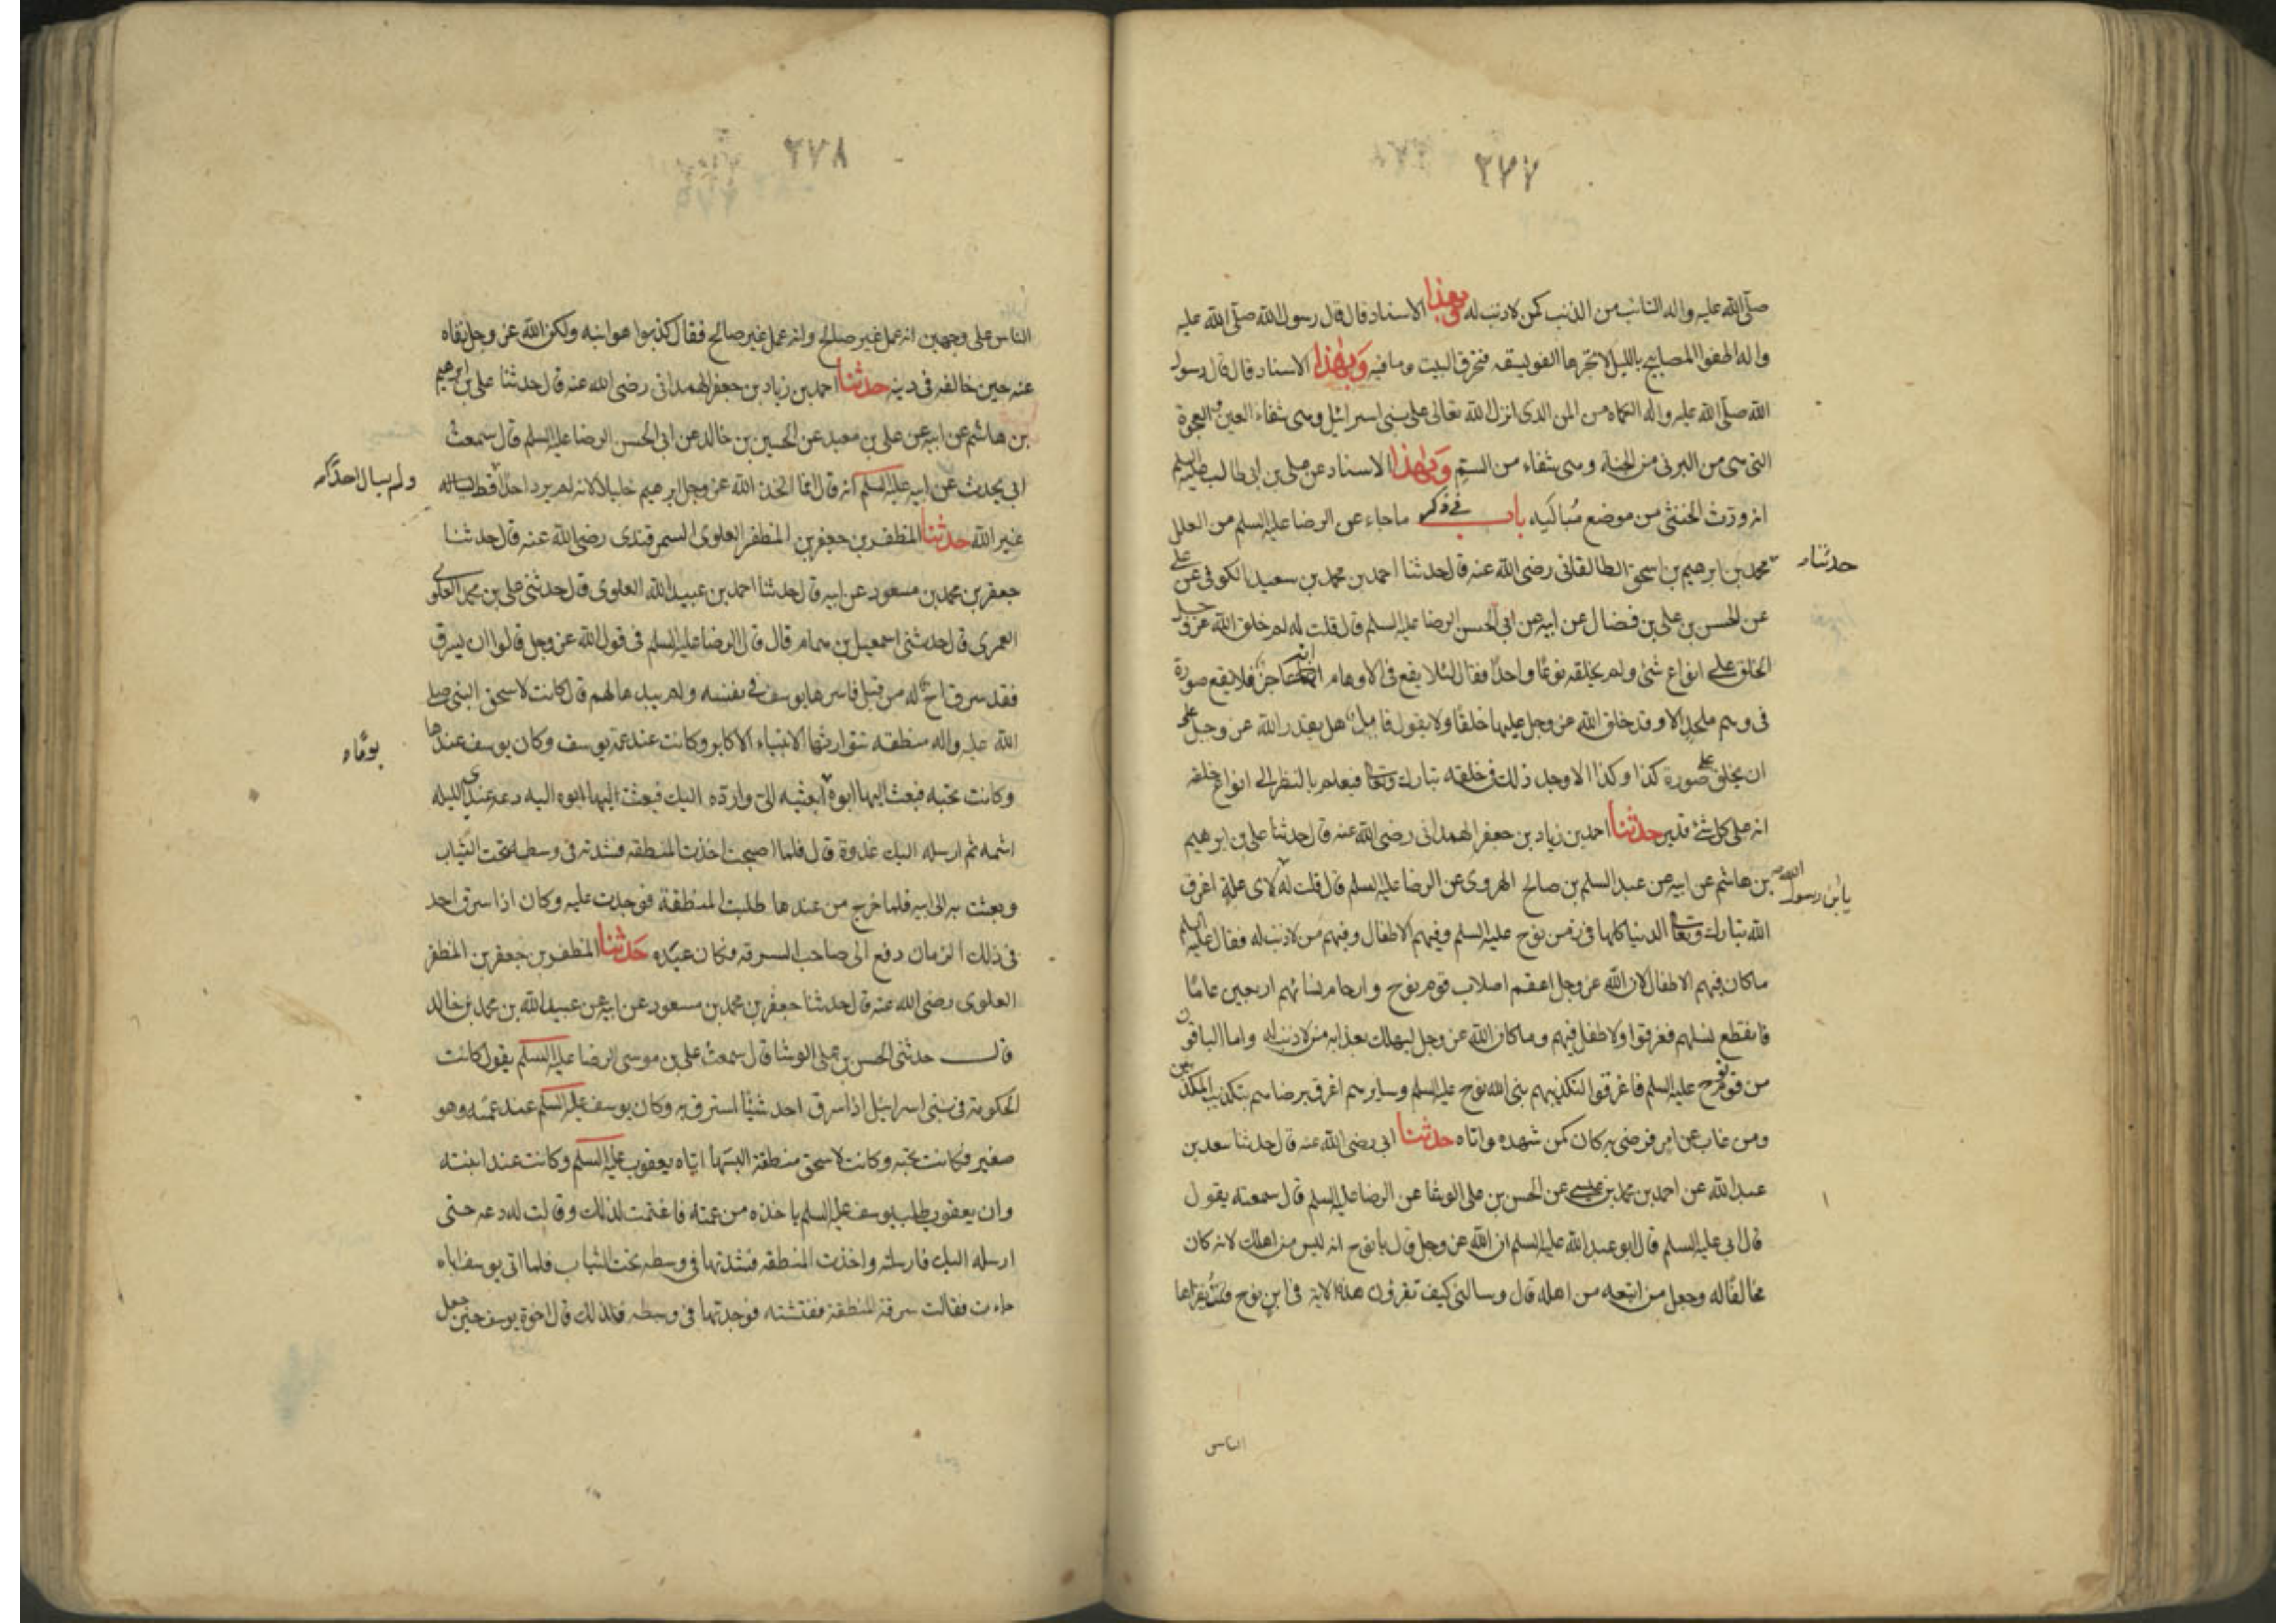 ٢٧٧
صلّى الله عليه واله التائب من الذنب كمن لا ذنب له وبهذا الاسناد قال قال رسول الله صلّى الله عليه
واله اطفوا المصابيح بالليل لا تجرها الفويسقه فتحرق البيت وما فيه وبهذا الاسناد قال قال رسول
الله صلّى الله عليه واله الكماه من المن الذى انزل الله تعالى على بنى اسرائيل وهى شفاء العين والعجوة
التى هى من البرنى من الجنة وهى شفاء من السّم وبهذا الاسناد عن على بن ابى طالب عليه السلم
انه ورّث الخنثى من موضع مباليه باب فى ذكر ماجاء عن الرضا عليه السلم من العلل
حدثنا
محمد بن ابرهيم بن اسحق الطالقانى رضى الله عنه قال حدثنا احمد بن محمد بن سعيد الكوفى عن على
عن الحسن بن على بن فضال عن ابيه عن ابى الحسن الرضا عليه السلم قال قلت له لم خلق الله عز وجل
الخلق على انواع شتى ولم يخلقه نوعًا واحدًا فقال لئلا يقع فى الاوهام انه عاجز فلا يقع صورة
فى وهم ملحد الا وقد خلق الله عز وجل عليها خلقًا ولا يقول قايل هل يقدر الله عز وجل على
ان يخلق على صورة كذا وكذا الا وجد ذلك فى خلقه تبارك وتعا فيعلم بالنظر الى انواع خلقه
انه على كل شئ قدير حدثنا احمد بن زياد بن جعفر الهمدانى رضى الله عنه قال حدثنا على بن ابرهيم
بن هاشم عن ابيه عن عبد السلم بن صالح الهروى عن الرضا عليه السلم قال قلت له لاى علة اغرق
يا بن رسول الله
الله تبارك وتعا الدنيا كلها فى زمن نوح عليه السلم وفيهم الاطفال وفيهم من لا ذنب له فقال عليه السلم
ماكان فيهم الاطفال لان الله عز وجل اعقم اصلاب قوم نوح وارحام نسائهم اربعين عامًا
فانقطع نسلهم فغرقوا ولا طفل فيهم وماكان الله عز وجل ليهلك بعذابه من لا ذنب له واما الباقون
من قوم نوح عليه السلم فاغرقوا لتكذيبهم بنى الله نوح عليه السلم وسايرهم اغرق برضاهم بتكذيب المكذبين
ومن غاب عن امر فرضى به كان كمن شهده واتاه حدثنا ابى رضى الله عنه قال حدثنا سعد بن
عبد الله عن احمد بن محمد بن عيسى عن الحسن بن على الوشا عن الرضا عليه السلم قال سمعته يقول
قال ابى عليه السلم قال ابو عبد الله عليه السلم ان الله عز وجل قال يا نوح انه ليس من اهلك لانه كان
مخالفًا له وجعل من اتبعه من اهله قال وسالنى كيف تقرؤن هذه الاية فى ابن نوح فقلت يقراها
الناس
٢٧٨
الناس على وجهين انه عمل غير صالح وانه عمل غير صالح فقال كذبوا هو ابنه ولكن الله عز وجل نفاه
عنه حين خالفه فى دينه حدثنا احمد بن زياد بن جعفر الهمدانى رضى الله عنه قال حدثنا على بن ابرهيم
بن هاشم عن ابيه عن على بن معبد عن الحسين بن خالد عن ابى الحسن الرضا عليه السلم قال سمعت
ابى يحدث عن ابيه عليه السلم انه قال انما اتخذ الله عز وجل ابرهيم خليلا لانه لم يرد احدا قط
ولم يسال احدًا
غير الله حدثنا المظفر بن جعفر بن المظفر العلوى السمرقندى رضى الله عنه قال حدثنا
جعفر بن محمد بن مسعود عن ابيه قال حدثنا احمد بن عبيد الله العلوى قال حدثنى على بن محمد العلوى
العمرى قال حدثنى اسمعيل بن همام قال قال الرضا عليه السلم فى قول الله عز وجل قالوا ان يسرق
فقد سرق اخ له من قبل فاسرها يوسف فى نفسه ولم يبدها لهم قال كانت لاسحق النبى صلى
الله عليه واله منطقه تتوارثها الانبياء الاكابر وكانت عند عمة يوسف وكان يوسف عندها
يومًا
وكانت تحبه فبعث اليها ابوه ابعثيه الى وارده اليك فبعثت اليها ابوه اليه دعه عندى الليله
اشمه ثم ارسله اليك غدوة قال فلما اصبحت اخذت المنطقه فشدته فى وسطه تحت الثياب
وبعثت به الى ابيه فلما خرج من عندها طلبت المنطقة فوجدت عليه وكان اذا سرق احد
فى ذلك الزمان دفع الى صاحب السرقه فكان عبده حدثنا المظفر بن جعفر بن المظفر
العلوى رضى الله عنه قال حدثنا جعفر بن محمد بن مسعود عن ابيه عن عبيد الله بن محمد بن خالد
قال حدثنى الحسن بن على الوشا قال سمعت على بن موسى الرضا عليه السلم يقول كانت
الحكومة فى بنى اسرائيل اذا سرق احد شيئًا استرق به وكان يوسف عليه السلم عند عمته وهو
صغير فكانت تحبه وكانت لاسحق منطقة البسها اياه يعقوب عليه السلم وكانت عند ابنته
وان يعقوب طلب يوسف عليه السلم ياخذه من عمته فاغتمت لذلك وقالت له دعه حتى
ارسله اليك فارسلته واخذت المنطقه فشدتها فى وسطه تحت الثياب فلما اتى يوسف اباه
جاءت فقالت سرقة المنطقة ففتشته فوجدتها فى وسطه فلذلك قال اخوة يوسف حين جعل